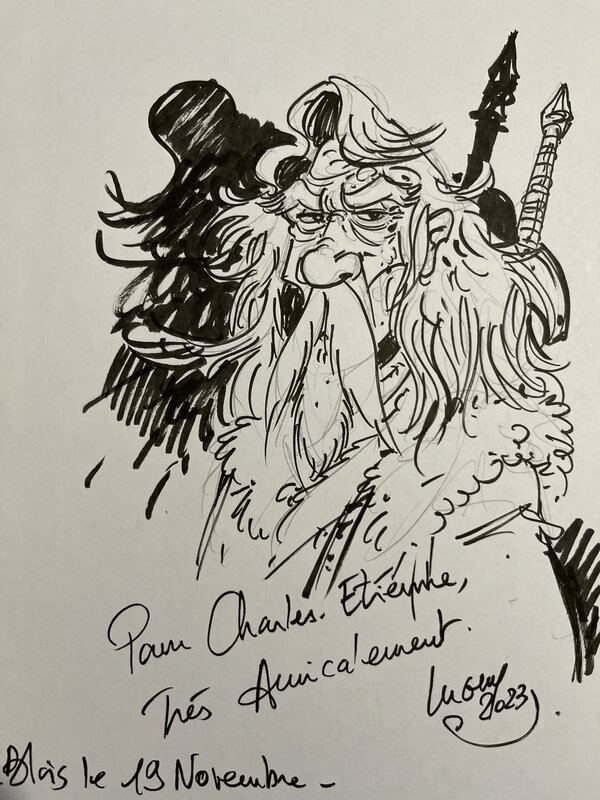 Pour Charles. Etienne,
Très Amicalement.
2023
Blois le 19 Novembre -